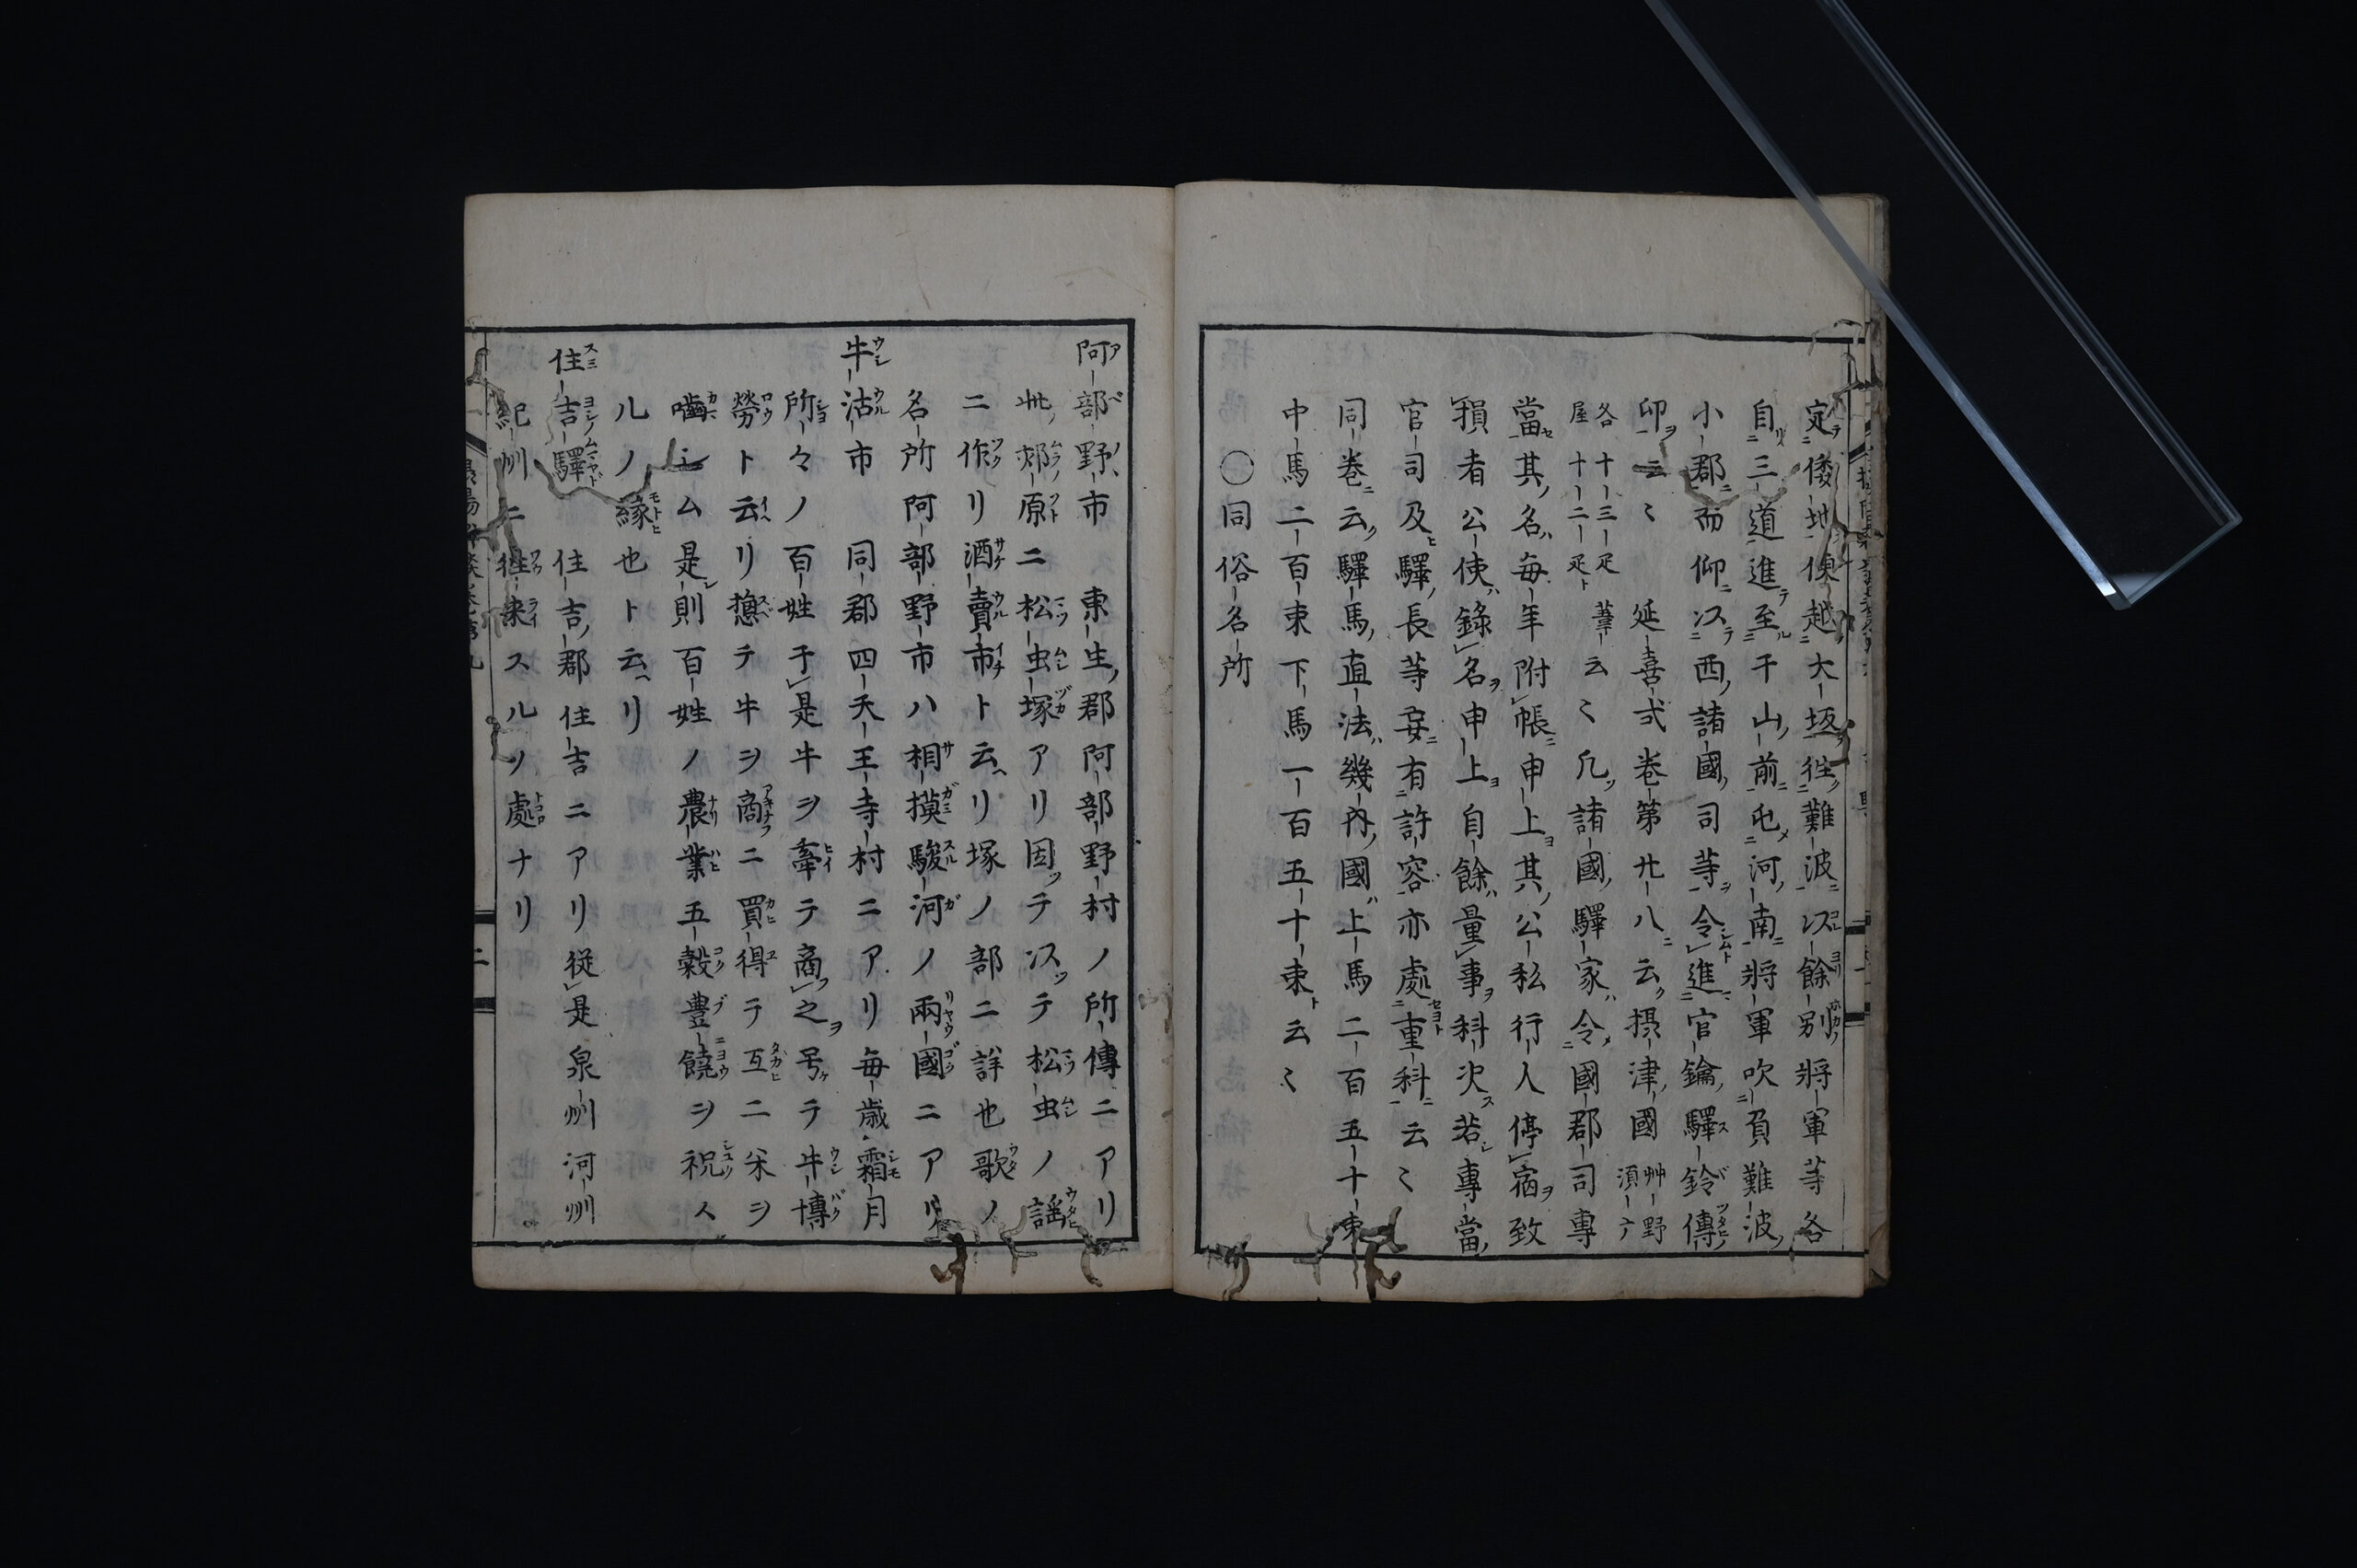 定倭地便越大坂徃難波以餘別將軍等各
自三道進至于山前屯河南將軍吹負難波
小郡而仰以西諸國司等令進官鑰驛鈴傳
印云〻延喜式卷第廿八云摂津國艸野須
各十三疋屋十二疋葦云〻凡諸國驛家令國郡司專
當其名毎年附帳申上其公私行人停宿致
損者公使錄名申上自餘量事科决若專當
官司及驛長等妄有許容亦處重科云〻
同卷云驛馬直法幾内國上馬二百五十束
中馬二百束下馬一百五十束云〻
○同俗名所
阿部野市 東生郡阿部野村ノ所傳ニアリ
此郊原ニ松虫塚アリ因テ以テ松虫ノ謡
ニ作リ酒賣市ト云リ塚ノ部ニ詳也歌ノ
名所阿部野市ハ相摸駿河ノ兩國ニアリ
牛沽市 同郡四天王寺村ニアリ毎歳霜月
所々ノ百姓于是牛ヲ牽テ商之号テ牛博
勞ト云リ憩テ牛ヲ商ニ買得テ互ニ米ヲ
嚙シム是則百姓ノ農業五穀豊饒ヲ祝ス
ルノ縁也ト云リ
住吉驛 住吉郡住吉ニアリ従是泉州河州
紀州ニ徃来スルノ處ナリ